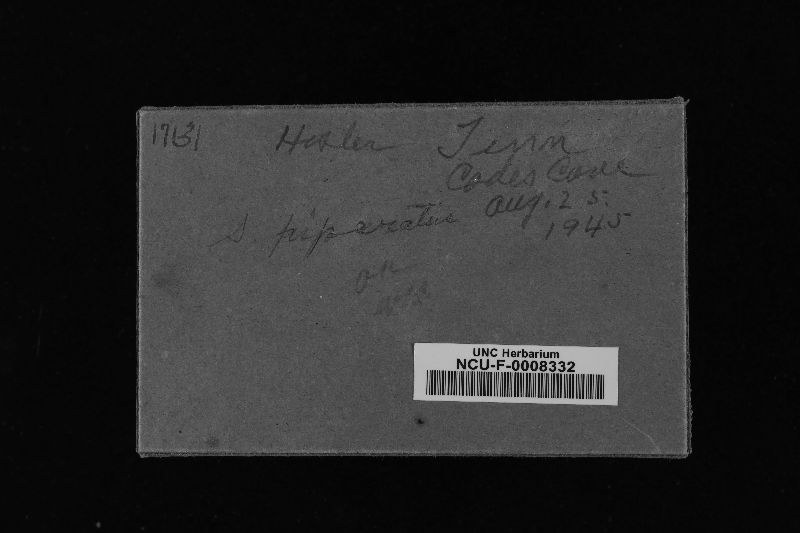 Hesler Tenn
Cades Cove
Aug. 25.
1945
S. piperatus
on
UNC Herbarium
NCU-F-0008332